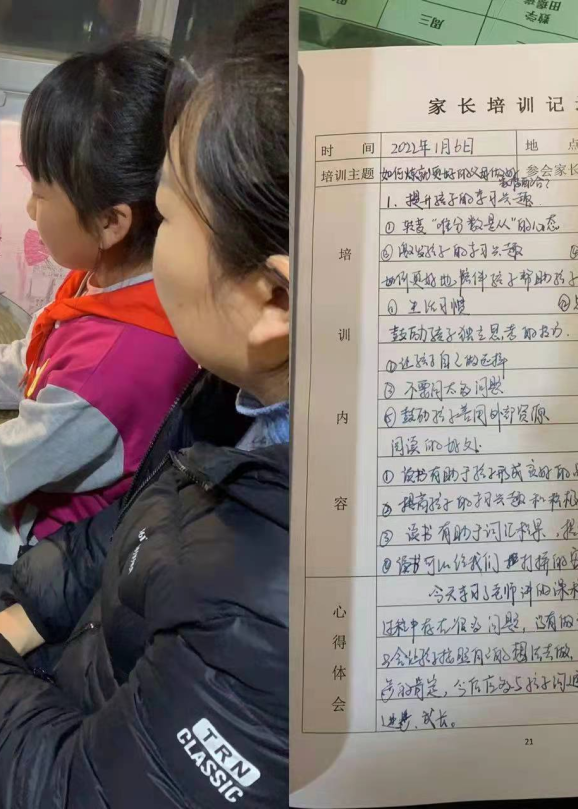 周三
数学
家长培训记
时 间 2022年1月6日 地 点
培训主题 参会家长
1、提升孩子的学习兴趣
① 转变“唯分数是从”的心态
② 激发孩子的学习兴趣
如何更好地陪伴孩子帮助孩子
① 生活习惯
鼓励孩子独立思考的能力.
① 让孩子自己的选择
② 不要问太多问题
③ 鼓励孩子善用外部资源
阅读的好处:
① 读书有助于孩子形成良好的
② 提高孩子的学习兴趣和积极
③ 读书有助于词汇积累,提
④ 读书可以给我们 打择的
培训内容
今天学习了老师讲的课
过程中存在很多问题,没有
会让孩子按照自己的想法去做,
的肯定,今后应多与孩子沟通
进步、成长。
心得体会
21
TRN
CLASSIC